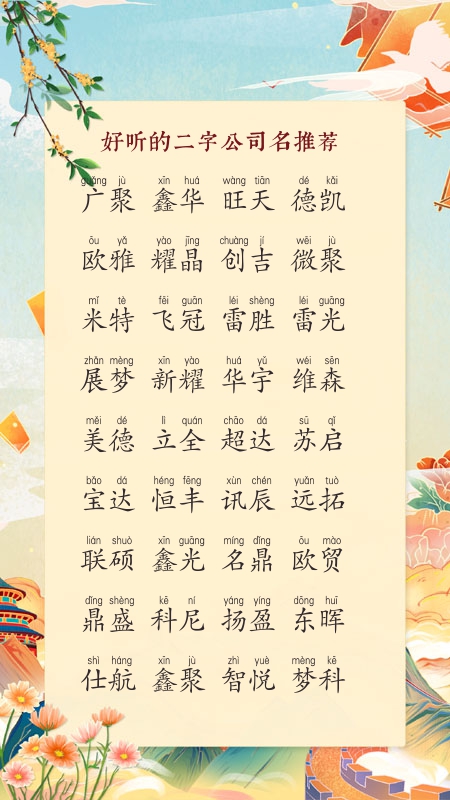 好听的二字公司名推荐
guǎng jù xīn huá wàng tiān dé kǎi
广聚 鑫华 旺天 德凯
ōu yǎ yào jīng chuàng jí wēi jù
欧雅 耀晶 创吉 微聚
mǐ tè fēi guān léi shèng léi guāng
米特 飞冠 雷胜 雷光
zhǎn mèng xīn yào huá yǔ wéi sēn
展梦 新耀 华宇 维森
měi dé lì quán chāo dá sū qǐ
美德 立全 超达 苏启
bǎo dá héng fēng xùn chén yuǎn tuò
宝达 恒丰 讯辰 远拓
lián shuò xīn guāng míng dǐng ōu mào
联硕 鑫光 名鼎 欧贸
dǐng shèng kē ní yáng yíng dōng huī
鼎盛 科尼 扬盈 东晖
shì háng xīn jù zhì yuè mèng kē
仕航 鑫聚 智悦 梦科